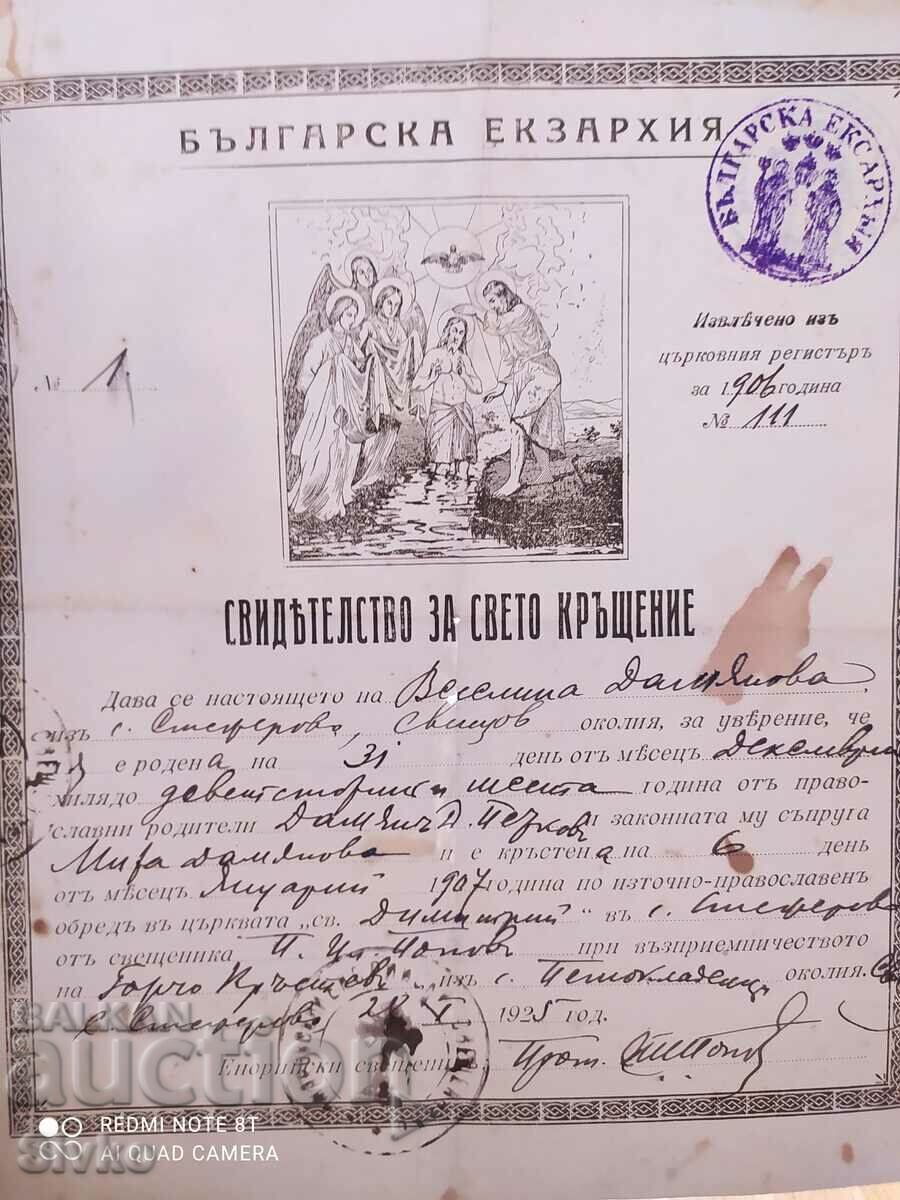 БЪЛГАРСКА ЕКЗАРХИЯ
БЪЛГАРСКА ЕКСАРХИЯ
Извлѣчено изъ
църковния регистъръ
за 1906 година
№ 111
№ 1
СВИДѢТЕЛСТВО ЗА СВЕТО КРЪЩЕНИЕ
Дава се настоящето на Веселина Дамянова
изъ с. Стежерово, Свищов околия, за уверение, че
е родена на 31 день отъ месецъ Декемврий
хилядо деветстотин и шеста година отъ право-
славни родители Дамянъ Д. Петковъ и законната му съпруга
Мита Дамянова и е кръстена на 6 день
отъ месецъ Януарий 1907 година по източно-православен
обредъ въ църквата „св. Димитрий" въ с. Стежерово
отъ свещеника П. Поповъ при възприемничеството
на Горчо Кръстевъ изъ с. Петокладенци околия
с. Стежерово 28 V 1925 год.
Енорийски свещеникъ: Прот. Попов
BALKAN
auction
REDMI NOTE 8T
AI QUAD CAMERA
Sivko